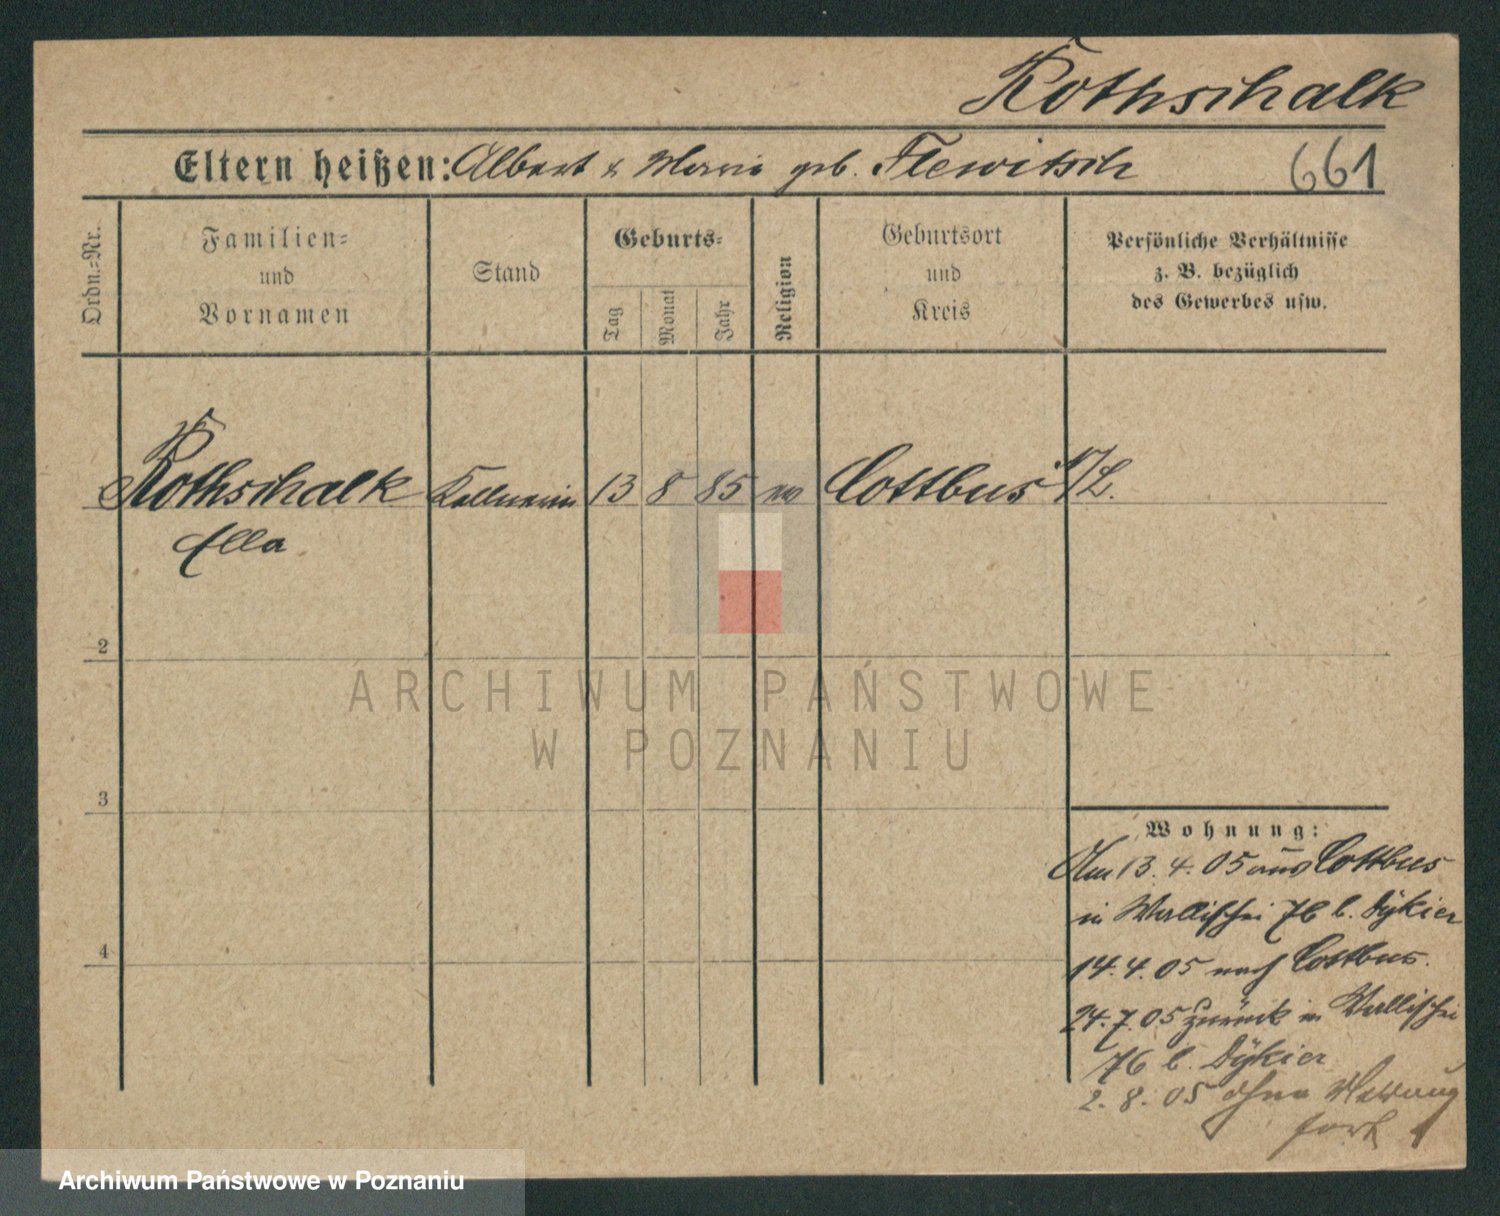 Rothschalk
Eltern heißen: Albert & Maria geb. Flewitsch
661
Ordn.=Nr.
Familien=
und
Vornamen
Stand
Geburts=
Tag
Monat
Jahr
Religion
Geburtsort
und
Kreis
Persönliche Verhältnisse
z. B. bezüglich
des Gewerbes usw.
Rothschalk Kellnerin 13 8 85 ev Cottbus
Ella
2
3
4
Wohnung:
Am 13. 4. 05 aus Cottbus
in Wallischei 76 b. Dykier
14. 4. 05 nach Cottbus.
24. 7. 05 zurück in Wallischei
76 b. Dykier
2. 8. 05 ohne Meldung
fort
ARCHIWUM PAŃSTWOWE
W POZNANIU
Archiwum Państwowe w Poznaniu